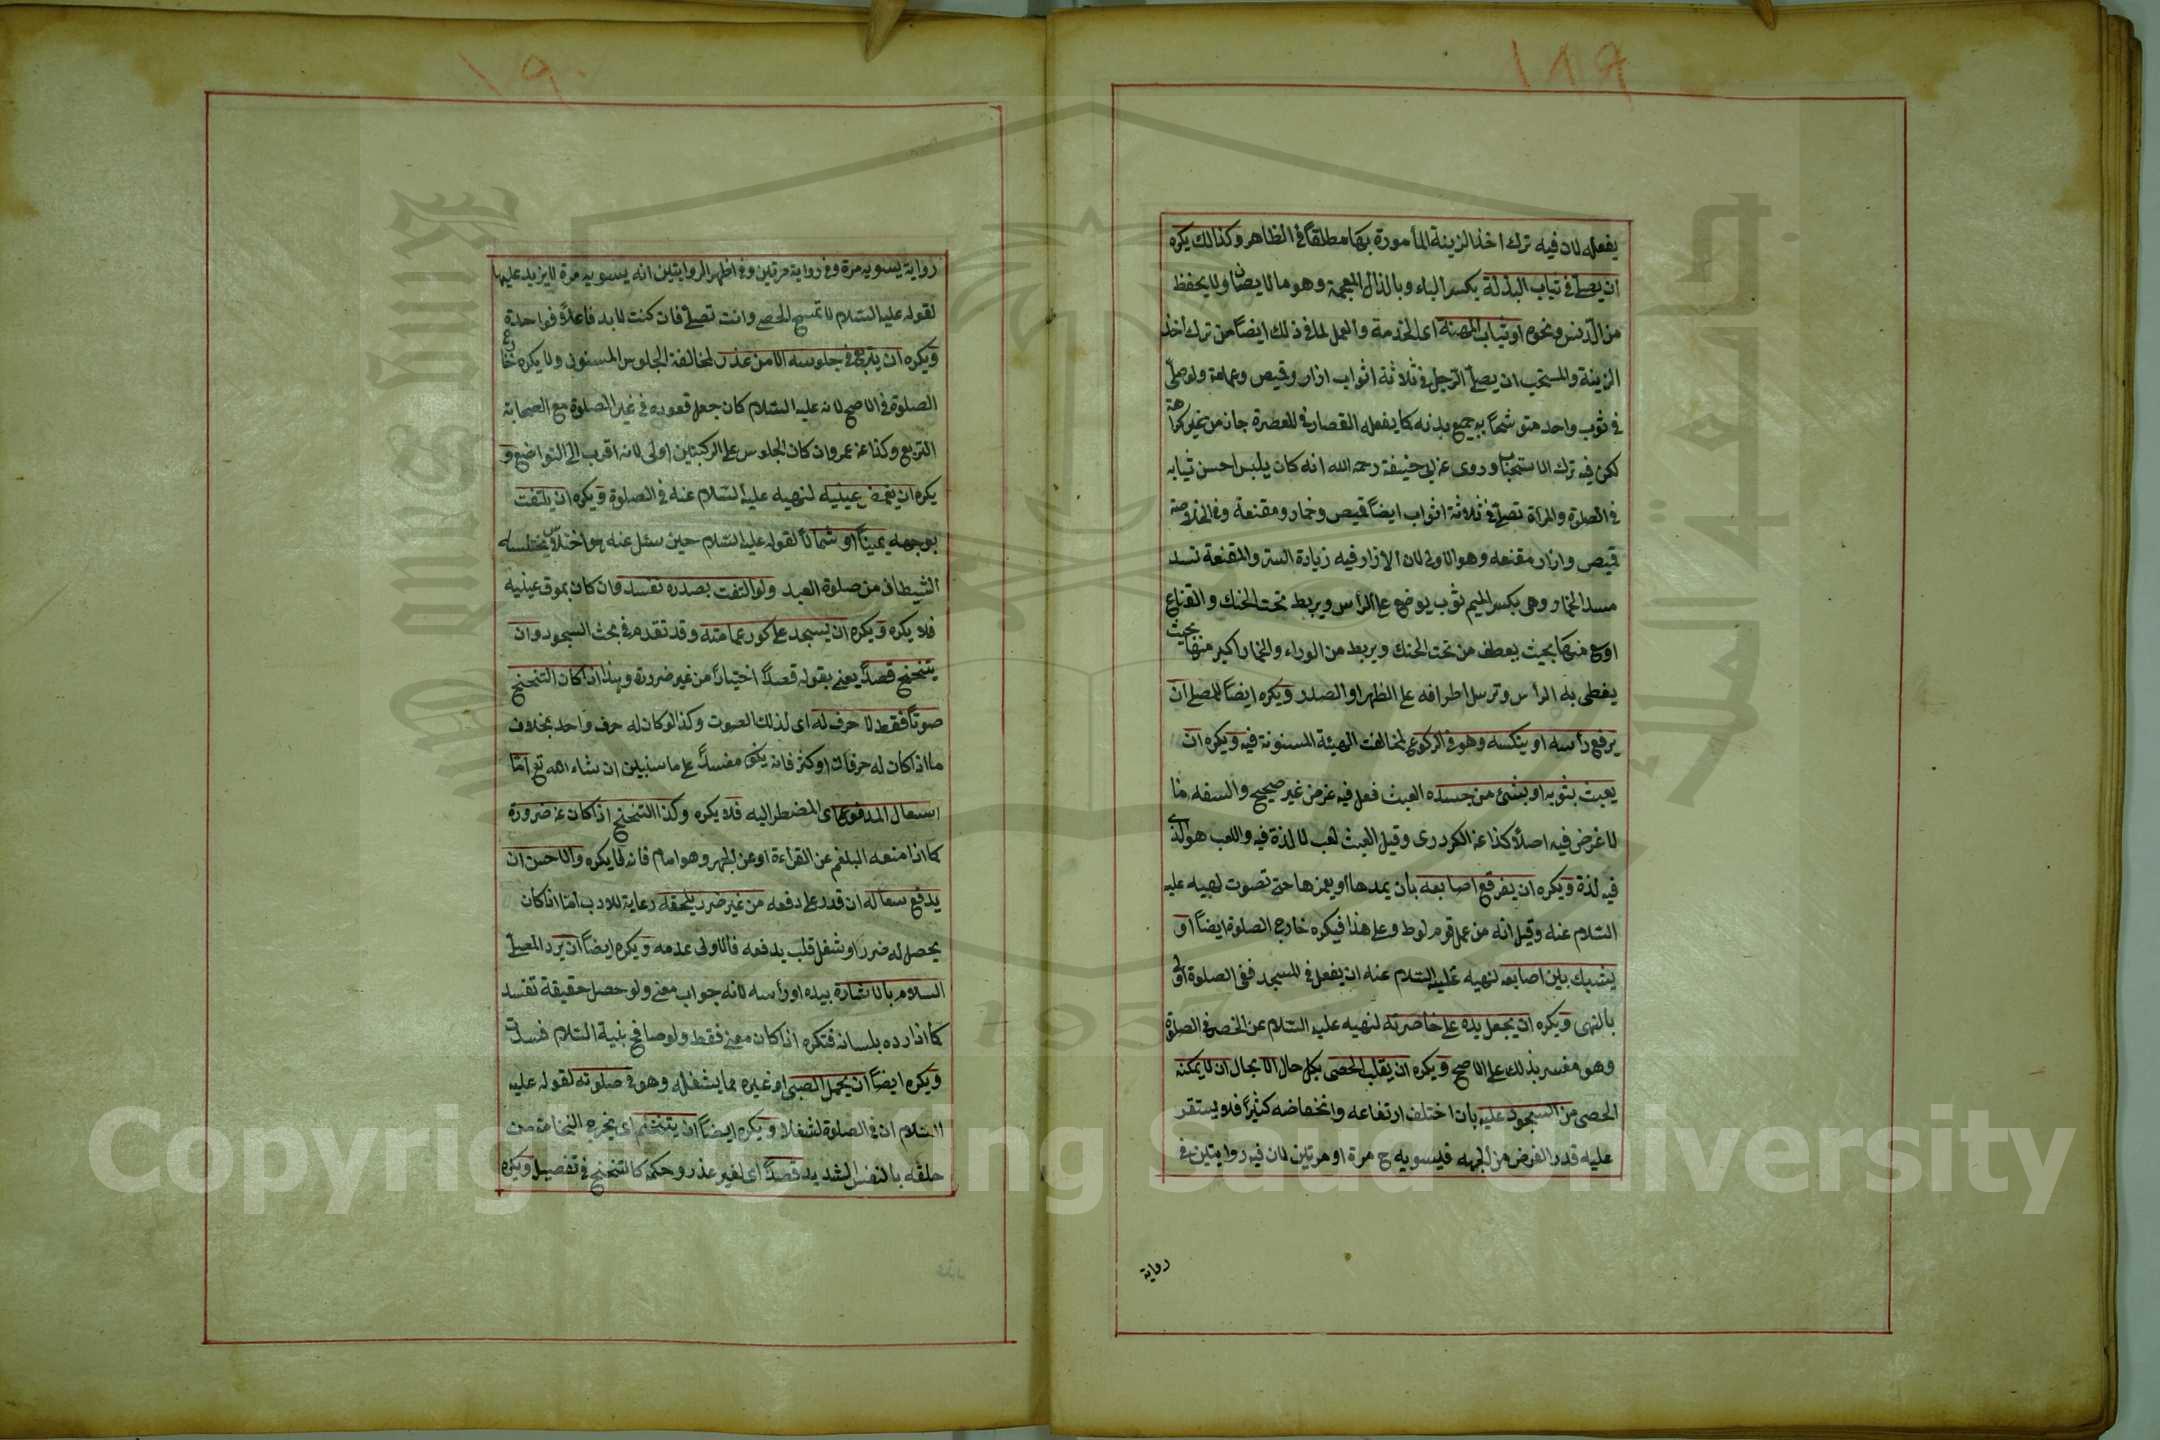 ١٨٩
يفعله لان فيه ترك اخذ الزينة المأمورة بها مطلقاً في الظاهر وكذلك يكره
ان يصلي في ثياب البذلة بكسر الباء وبالذال المعجمة وهو ما لا يصان ولا يحفظ
من الدنس ونحوه او ثياب المهنة اى الخدمة والعمل لما في ذلك ايضاً من ترك اخذ
الزينة والمستحب ان يصلي الرجل في ثلاثة اثواب ازار وقميص وعمامة ولو صلى
في ثوب واحد متوشحاً به جميع بدنه كما يفعله القصار في المقصرة جاز من غير كراهة
لكن فيه ترك الاستحباب وروى عن ابى حنيفة رحمه الله انه كان يلبس احسن ثيابه
في الصلوة والمرأة تصلي في ثلاثة اثواب ايضاً قميص وخمار ومقنعة وفي الخلاصة
قميص وازار ومقنعه وهو الاولى لان الازار فيه زيادة الستر والمقنعة تسد
مسد الخمار وهى بكسر الميم ثوب يوضع على الرأس ويربط تحت الحنك والقناع
اوسع منها بحيث يعطف من تحت الحنك ويربط من الوراء والخمار اكبر منها بحيث
يغطى به الرأس وترسل اطرافه على الظهر او الصدر ويكره ايضاً للمصلى ان
يرفع رأسه او ينكسه وهو في الركوع لمخالفت الهيئة المسنونة فيه ويكره ان
يعبث بثوبه او بشئ من جسده العبث فعل فيه غرض غير صحيح والسفه ما
لا غرض فيه اصلاً كذا عن الكردرى وقيل العبث لعب لا لذة فيه واللعب هو لذى
فيه لذة ويكره ان يفرقع اصابعه بأن يمدها او يغمزها حتى تصوت لنهيه عليه
السلام عنه وقيل انه من عمل قوم لوط وعلى هذا فيكره خارج الصلوة ايضاً او
يشبك بين اصابعه لنهيه عليه السلام عنه ان يفعل في المسجد ففى الصلوة اولى
بالنهى ويكره ان يجعل يده على خاصرته لنهيه عليه السلام عن الخصر في الصلوة
وهو مفسر بذلك على الاصح ويكره ان يقلب الحصى بكل حال الا بحال ان لا يمكنه
الحصى من السجود عليه بان اختلف ارتفاعه وانخفاضه كثيراً فلا يستقر
عليه قدر الفرض من الجبهه فيسويه ح مرة او مرتين لان فيه روايتين في
رواية
١٩٠
رواية يسويه مرة وفي رواية مرتين وفي اظهر الروايتين انه يسويه مرة لا يزيد عليها
لقوله عليه السلام لا تمسح الحصى وانت تصلي فان كنت لابد فاعلاً فواحدة
ويكره ان يتربع في جلوسه الا من عذر لمخالفة الجلوس المسنون ولا يكره خارج
الصلوة في الاصح لانه عليه السلام كان جعل قعوده في غير الصلوة مع الصحابة
التربع وكذا عن عمر وان كان الجلوس على الركبتين اولى لانه اقرب الى التواضع و
يكره ان يغمض عينيه لنهيه عليه السلام عنه في الصلوة ويكره ان يلتفت
بوجهه يميناً او شمالاً لقوله عليه السلام حين سئل عنه هو اختلاس يختلسه
الشيطان من صلوة العبد ولو التفت بصدره تفسد وان كان بموق عينيه
فلا يكره ويكره ان يسجد على كور عمامته وقد تقدم في بحث السجود وان
يتنحنح قصداً يعنى بقوله قصداً اختياراً من غير ضرورة وهذا اذا كان التنحنح
صوتاً فقط لا حرف له اى لذلك الصوت وكذا لو كان له حرف واحد بخلاف
ما اذا كان له حرفان او كثر فانه يكون مفسداً على ما سنبين ان شاء الله تع اما
اسعال المدفوع اى المضطر اليه فلا يكره وكذا التنحنح اذا كان عن ضرورة
كما اذا منعه البلغم عن القراءة او عن الجهر وهو امام فانه لا يكره والاحسن ان
يدفع سعاله ان قدر على دفعه من غير ضرر يلحقه رعاية للادب اما اذا كان
يحصل له ضرر او شغل قلب يدفعه فالاولى عدمه ويكره ايضاً ان يرد المصلى
السلام بالاشارة بيده او رأسه لانه جواب معنى ولو حصل حقيقة تفسد
كما اذا رده بلسانه فتكره اذا كان معنى فقط ولو صافح بنية السلام فسدت
ويكره ايضاً ان يحمل الصبى او غيره مما يشغله وهو في صلوته لقوله عليه
السلام ان في الصلوة لشغلا ويكره ايضاً ان يتنخم اى يخرج النخامة من
حلقه بالنفس الشديد قصداً اى لغير عذر وحكمه كالتنحنح في تفصيله ويكره
Copyright © King Saud University